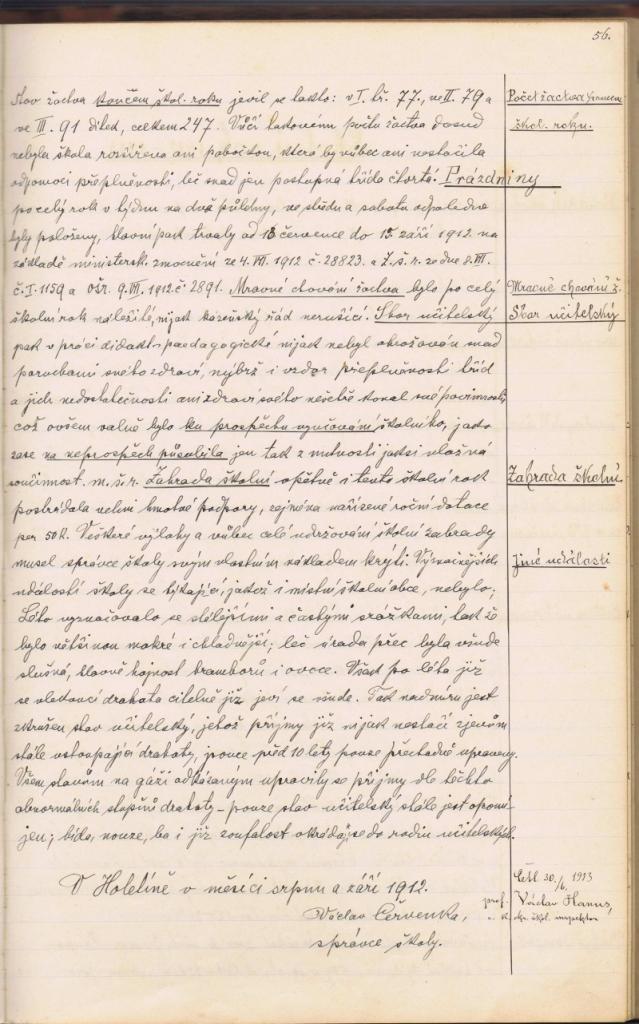 56.
Stav žactva koncem škol. roku jevil se takto: v I. tř. 77., ve II. 79 a
Počet žactva koncem
ve III. 91 dítek, celkem 247. Vůči takovému počtu žactva dosud
škol. roku.
nebyla škola rozšířena ani pobočkou, která by vůbec ani nestačila
odpomoci přeplněnosti, leč snad jen postupná třída čtvrtá. Prázdniny
po celý rok v týdnu na dva půldny, ve středu a sobotu odpoledne
byly položeny, hlavní pak trvaly od 15 července do 15. září 1912 na
základě ministersk. zmocnění ze 4. VII. 1912 č. 28823. a z. š. r. ze dne 8. VII.
č. I. 1159 a ošr. 9. VII. 1912 č. 2891. Mravné chování žactva bylo po celý
Mravné chování ž.
školní rok náležité, nijak kázeňský řád nerušící. Sbor učitelský
Sbor učitelský
pak v práci didakticko paedagogické nijak nebyl ohrožován snad
poruchami svého zdraví, nýbrž i vzdor přeplněnosti tříd
a jich nedostatečnosti ani zdraví svého nešetře konal své povinnosti,
což ovšem valně bylo ku prospěchu vyučování školního, jako
zase na neprospěch působila jen tak z nutnosti jaksi vlažná
součinnost m. š. r. Zahrada školní opětně i tento školní rok
Zahrada školní
postrádala velmi hmotné podpory, zejména nařízené roční dotace
per 50 K. Veškeré výlohy a vůbec celé udržování školní zahrady
musel správce školy svým vlastním nákladem krýti. Význačnějších
Jiné události
událostí školy se týkající, jakož i místní školní obce, nebylo;
Léto vyznačovalo se stálejšími a častými srážkami, tak že
bylo většinou mokré i chladnější; leč úroda přec byla všude
slušná, hlavně hojnost bramborů i ovoce. Však po léta již
se vlekoucí drahota citelně již jeví se všude. Tak nadmíru jest
zkrušen stav učitelský, jehož příjmy již nijak nestačí zjevům
stále vstoupající drahoty, jsouce před 10 lety pouze přechodně upraveny.
Všem stavům na gáži odkázaným upravily se příjmy dle těchto
abnormálních stupňů drahoty – pouze stav učitelský stále jest opomí-
jen; bída, nouze, ba i již zoufalost vkrádají se do rodin učitelských.
V Holetíně v měsíci srpnu a září 1912.
Václav Červenka,
správce školy.
Četl 30./6. 1913
prof. Václav Hanus,
c. k. okr. škol. inspektor